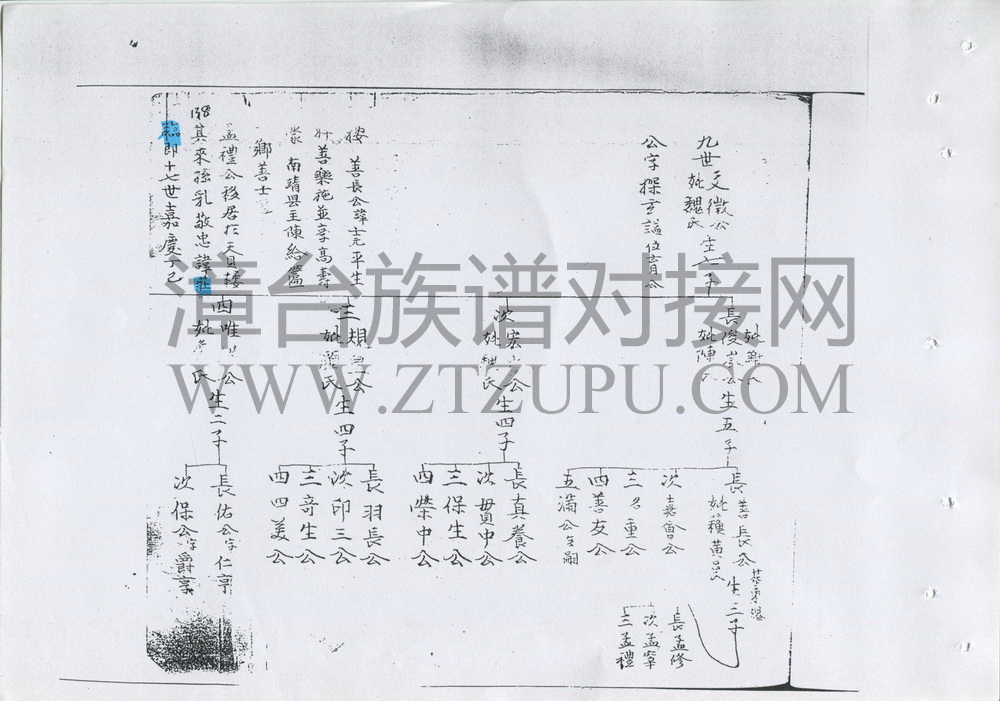 九世文徵公生七子
妣魏氏
公字探玄諡位育公
按善長公諱士元平生
好善樂施並享高壽
蒙南靖县王陳給匾
鄉善士
孟禮公移居於天貝樓
138其來孫乳敬忠諱莊
臨郎十七世嘉慶丁己
長俊崇公生五子
妣陳氏
次宏 公生四子
妣魏氏
三規 公生四子
妣 氏
四唯 公生二子
妣 氏
長善長公生三子
妣蘇黃呂氏
次嘉會公
三名重公
四善友公
五滿公乏嗣
長真養公
次貫中公
三保生公
四榮中公
長羽長公
次印三公
三奇生公
四四美公
長佑公字仁亨
次保公字爵享
長孟修
次孟宰
三孟禮
漳台族谱对接网
WWW.ZTZUPU.COM